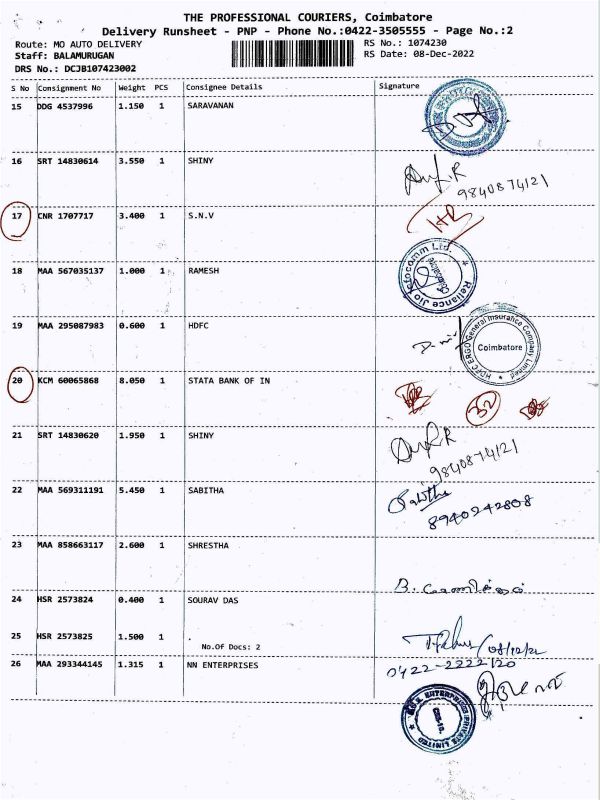 THE PROFESSIONAL COURIERS, Coimbatore
Delivery Runsheet - PNP - Phone No.:0422-3505555 - Page No.:2
Route: MO AUTO DELIVERY
RS No.: 1074230
Staff: BALAMURUGAN
RS Date: 08-Dec-2022
DRS No.: DCJB107423002
S No Consignment No Weight PCS Consignee Details Signature
15 DDG 4537996 1.150 1 SARAVANAN
16 SRT 14830614 3.550 1 SHINY
9840874121
17 CNR 1707717 3.400 1 S.N.V
18 MAA 567035137 1.000 1 RAMESH
Reliance Jio Infocomm Ltd.
19 MAA 295087983 0.600 1 HDFC
HDFC ERGO General Insurance Company Limited
Coimbatore
20 KCM 60065868 8.050 1 STATA BANK OF IN
32
21 SRT 14830620 1.950 1 SHINY
9840874121
22 MAA 569311191 5.450 1 SABITHA
Sabitha
8940242808
23 MAA 858663117 2.600 1 SHRESTHA
24 HSR 2573824 0.400 1 SOURAV DAS
25 HSR 2573825 1.500 1 .
No.Of Docs: 2
08/12/22
26 MAA 293344145 1.315 1 NN ENTERPRISES
0422-2222120
ENTERPRISES PRIVATE LIMITED